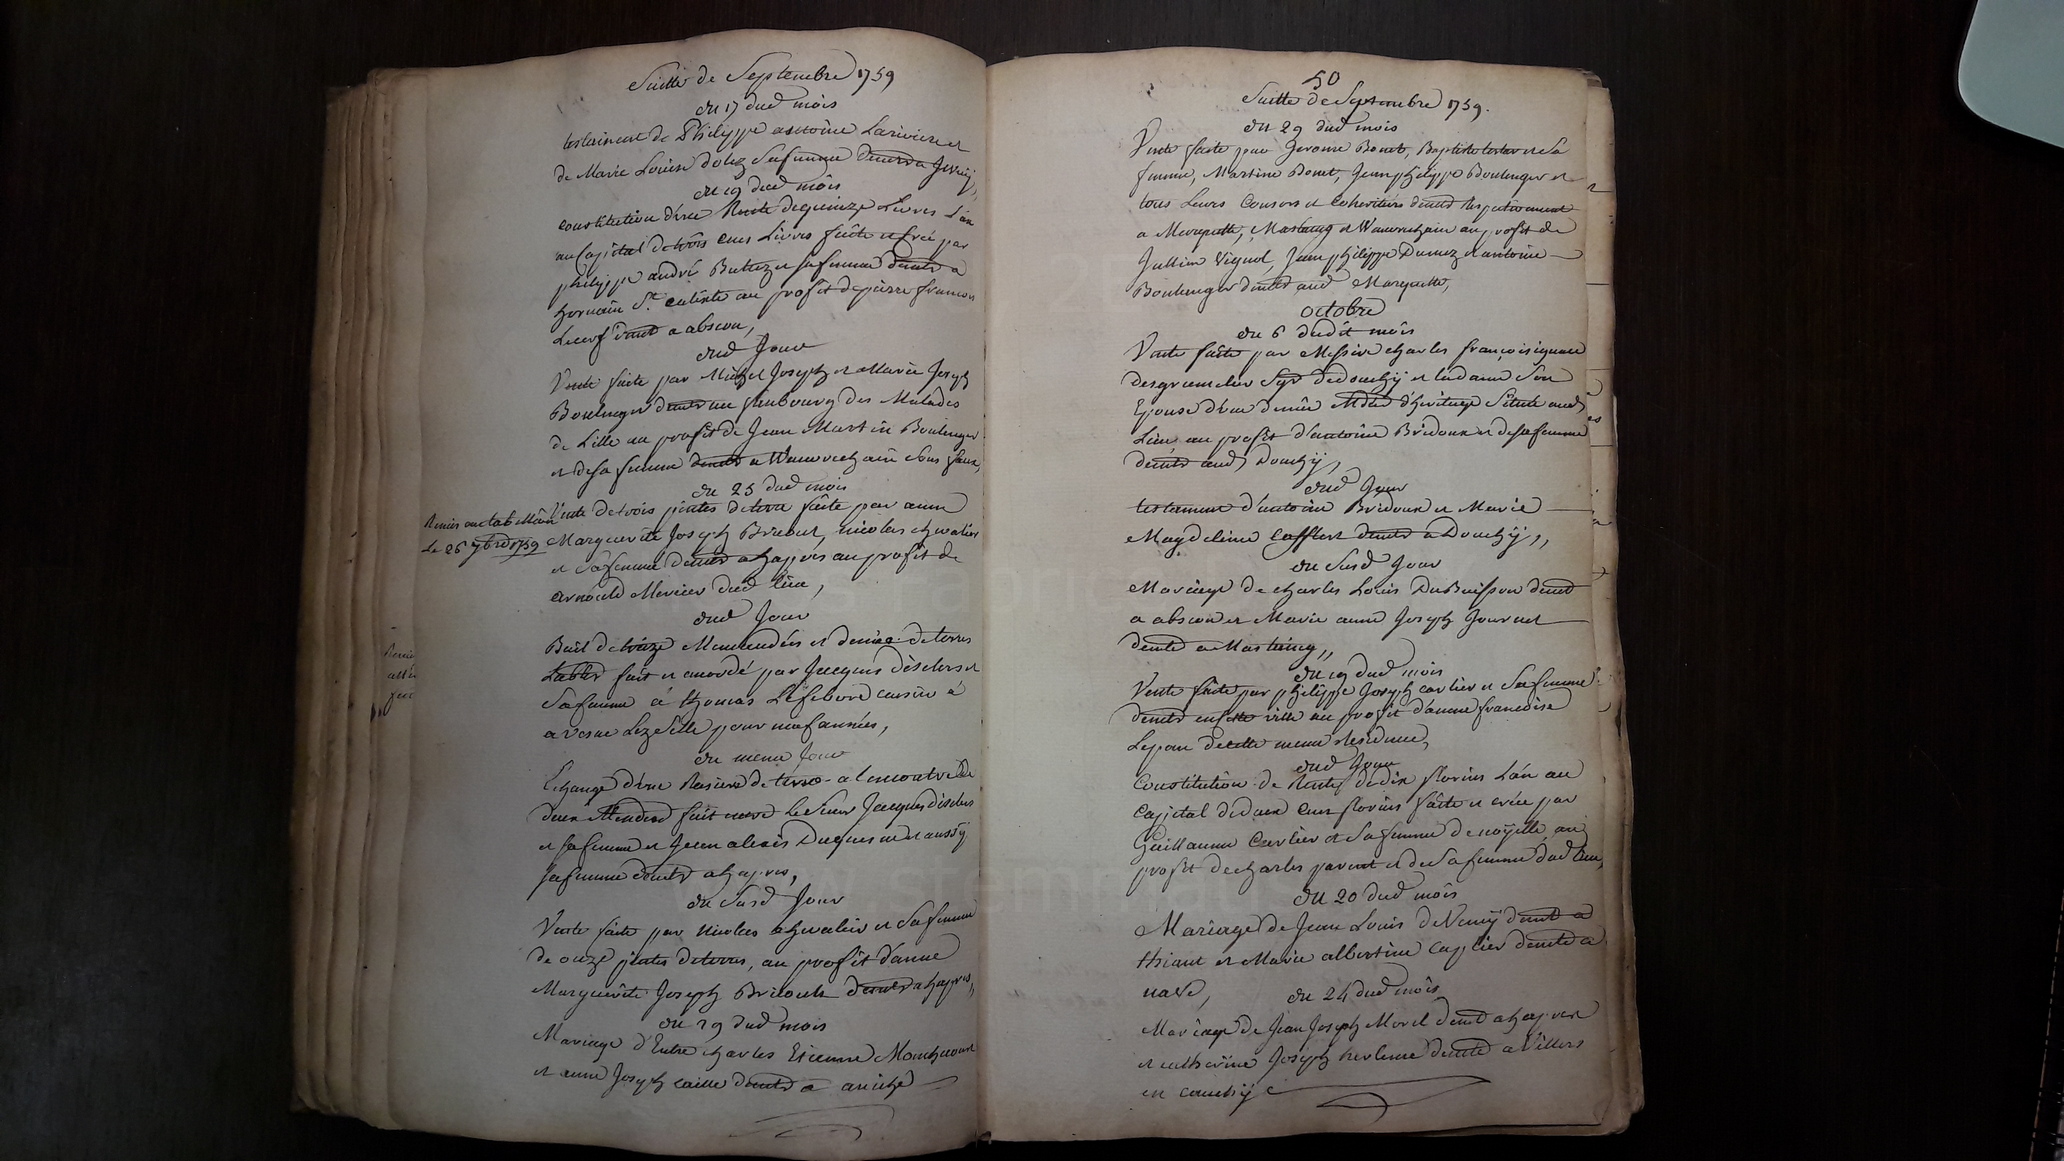 Suitte de Septembre 1759
du 17 dud mois
testament de Philippe antoine Lariviere et
de Marie Louise dolez Sa femme demts a
du 19 dud mois
constitution d'une Rente de quinze Livres L'an
au Capital de trois cens Livres faitte et Creé par
philippe andré et sa femme demts a
hornain St calixte au profit de pierre francois
Lecerf demt a abscon,
dud Jour
Vente faite par Michel Joseph et Marie Joseph
Boulenger demts au faubourg des Malades
de Lille au profit de Jean Martin Boulenger
et de sa femme demts a Wavrechain sous faux,
du 25 dud mois
Remis au tabellion
Le 26 7bre 1759
Vente de trois pintes de terre faite par anne
Marguerite Joseph Bricout, nicolas chevalier
et sa femme demts a haspres au profit de
arnould Mercier dud lieu,
dud Jour
Bail de treize Mencaudées et demiée de terres
Lables fait et accordé par Jacques déselers et
Sa femme á thomas Lefebvre censier á
avesne Lez Secle pour neuf années,
du meme Jour
Echange d'une Rasiere de terre a l'encontre de
deux Mendeed fait entre Le Sieur Jacques déselers
et sa femme et Jean alexis Duquesne et aussÿ
sa femme demts a haspres,
du Susd Jour
Vente faite par nicolas chevalier et Sa femme
de onze pintes de terres, au profit d'anne
Marguerite Joseph Bricout demts a haspres,
du 29 dud mois
Mariage d'Entre charles Etienne Monchecourt
et anne Joseph caille demts a aniche
50
Suitte de Septembre 1759.
du 29 dud mois
Vente faite par Jerome Bonet, Baptiste et Sa
femme, Martine Bonet, Jean philippe Boulenger et
tous Leurs Consors et Coheritiers demts respectivement
a Marquette, Mastaing et Wavrechain au profit de
Jullien Vignol, Jean philippe Dumez et antoine
Boulenger demts aud Marquette,
octobre
du 6 dudit mois
Vente faite par Messire charles françois ignace
desgruseliers Sgr de douchÿ et la dame Son
Epouse d'une demie d'heritage Situé aud
Lieu au profit d'antoine Bridoux et de sa femme
demts aud Douchÿ,
dud Jour
testament d'antoine Bridoux et Marie
Magdeleine demts a Douchÿ,,
du Susd Jour
Mariage de charles Louis DuBuisson demt
a abscon et Marie anne Joseph Gournet
demte a Mastaing,,
du 19 dud mois
Vente faite par philippe Joseph carlier et Sa femme
demts en cette ville au profit d'anne francoise
Lepan de cette meme Residence,
dud Jour
Constitution de Rente de dix florins L'an au
capital de deux cens florins faite et crée par
Guillaume Carlier et Sa femme de noÿelle, au
profit de charles parent et de Sa femme dud lieu,
du 20 dud mois
Mariage de Jean Louis deVemÿ demt a
thiant et Marie albertine caplier demte a
nave,
du 24 dud mois
Mariage de Jean Joseph Morel demt a haspres
et catherine Joseph herlenne demte a Villers
en cauchÿ